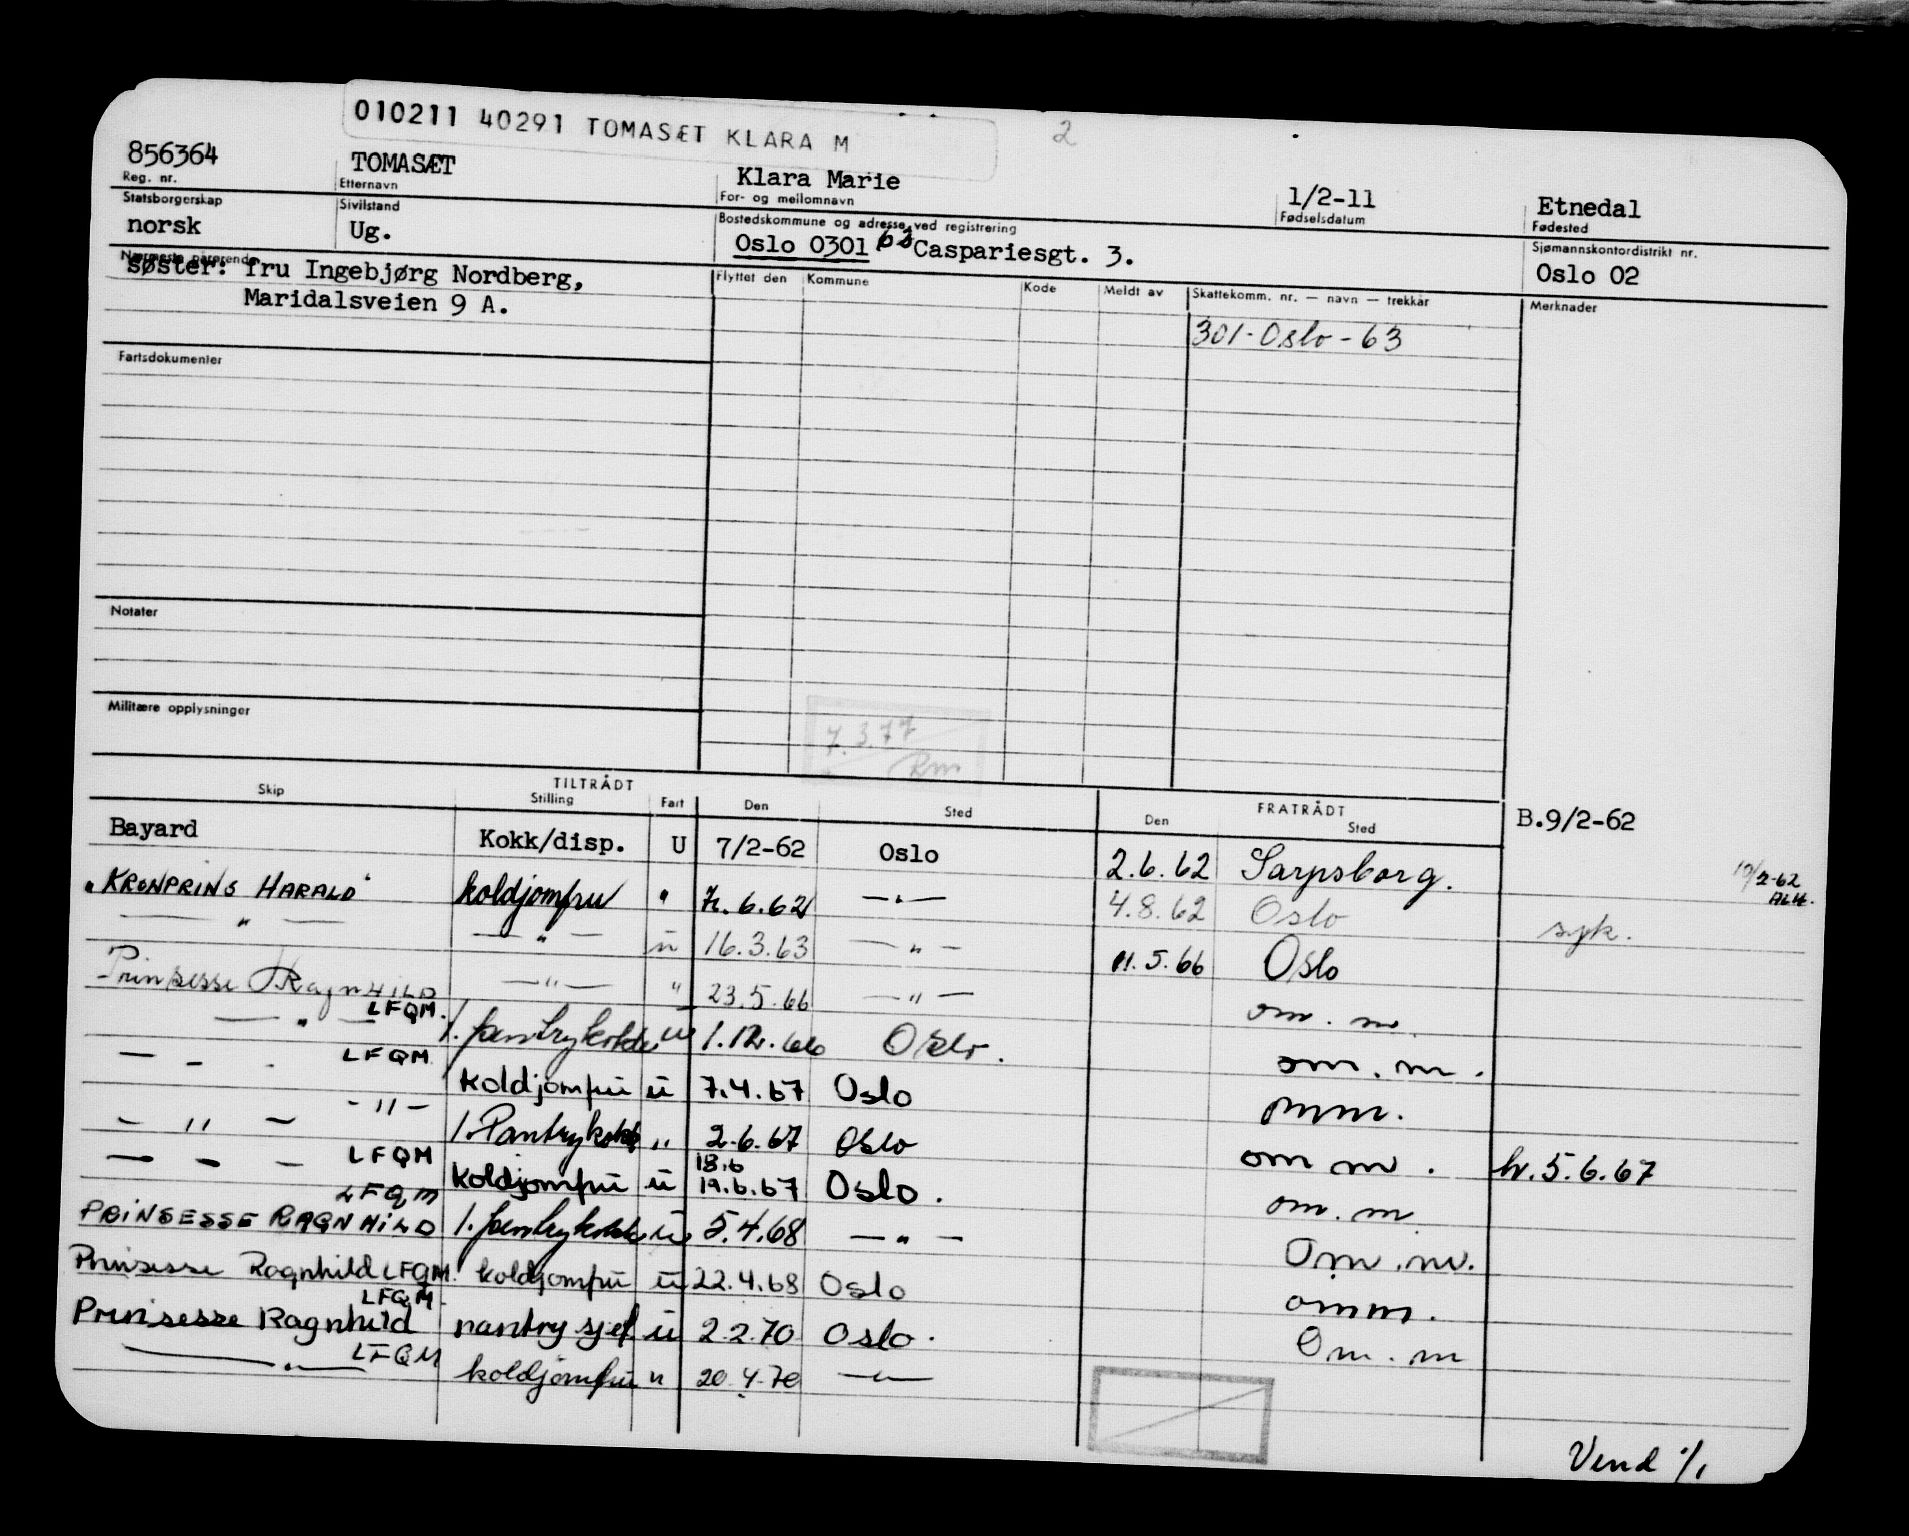 010211 40291 TOMASÆT KLARA M
2
856364 TOMASÆT Klara Marie 1/2-11 Etnedal
Reg. nr. Etternavn For- og mellomnavn Fødselsdatum Fødested
Statsborgerskap Sivilstand Bostedskommune og adresse ved registrering Sjømannskontordistrikt nr.
norsk Ug. Oslo 0301 63 Caspariesgt. 3. Oslo 02
Nærmeste pårørende Flyttet den Kommune Kode Meldt av Skattekomm. nr. — navn — trekkår Merknader
søster: fru Ingebjørg Nordberg,
Maridalsveien 9 A.
301-Oslo-63
Fartsdokumenter
Notater
Militære opplysninger
7.3.77
Rm
TILTRÅDT FRATRÅDT
Skip Stilling Fart Den Sted Den Sted
Bayard Kokk/disp. U 7/2-62 Oslo 2.6.62 Sarpsborg. B.9/2-62
"KRONPRINS HARALD" koldjomfru " 7.6.62 —"— 4.8.62 Oslo syk.
2-62
— " — — " — ü 16.3.63 — " — 11.5.66 Oslo
Prinsesse RagnHILD — " — " 23.5.66 — " — om. m.
LFQM.
— " — 1. pantrykokk u 1.12.66 Oslo. om. m.
LFQM
— - - koldjomfru ü 7.4.67 Oslo omm.
- " -
— " — 1. Pantrykokk " 2.6.67 Oslo om m. h. 5.6.67
LFQM
— - — koldjomfru ü 18.6 19.6.67 Oslo. om. m.
LFQM
PRINSESSE RAGNHILD 1. pantrykokk ü 5.4.68 — " — Om. m.
Prinsesse Ragnhild LFQM koldjomfru ü 22.4.68 Oslo omm.
LFQM
Prinsesse Ragnhild pantry sjef ü 2.2.70 Oslo. Om. m
LFQM
— " — koldjomfru u 20.4.70 — " —
Vend ./.